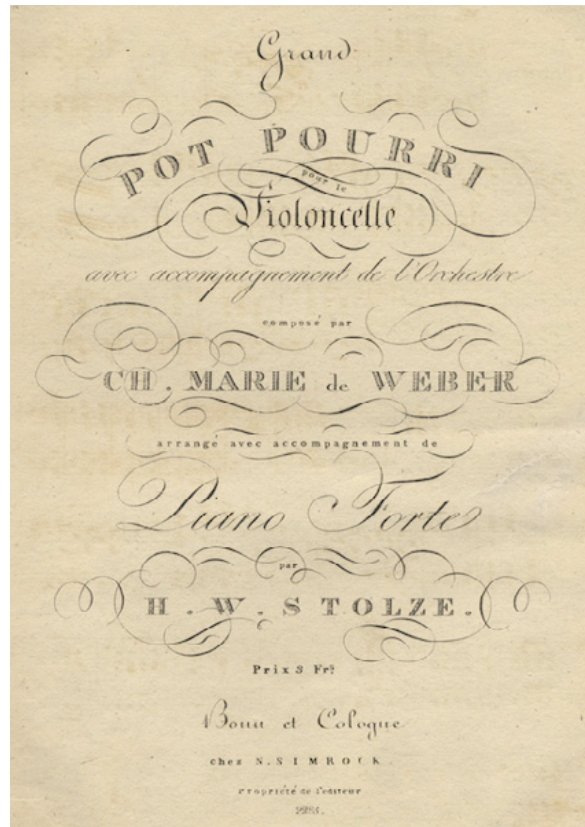 Grand
POT POURRI
pour le
Violoncelle
avec accompagnement de l'Orchestre
composé par
CH. MARIE de WEBER
arrangé avec accompagnement de
Piano Forte
par
H. W. STOLZE.
Prix 3 Frs
Bonn et Cologne
chez N. SIMROCK.
Propriété de l'editeur